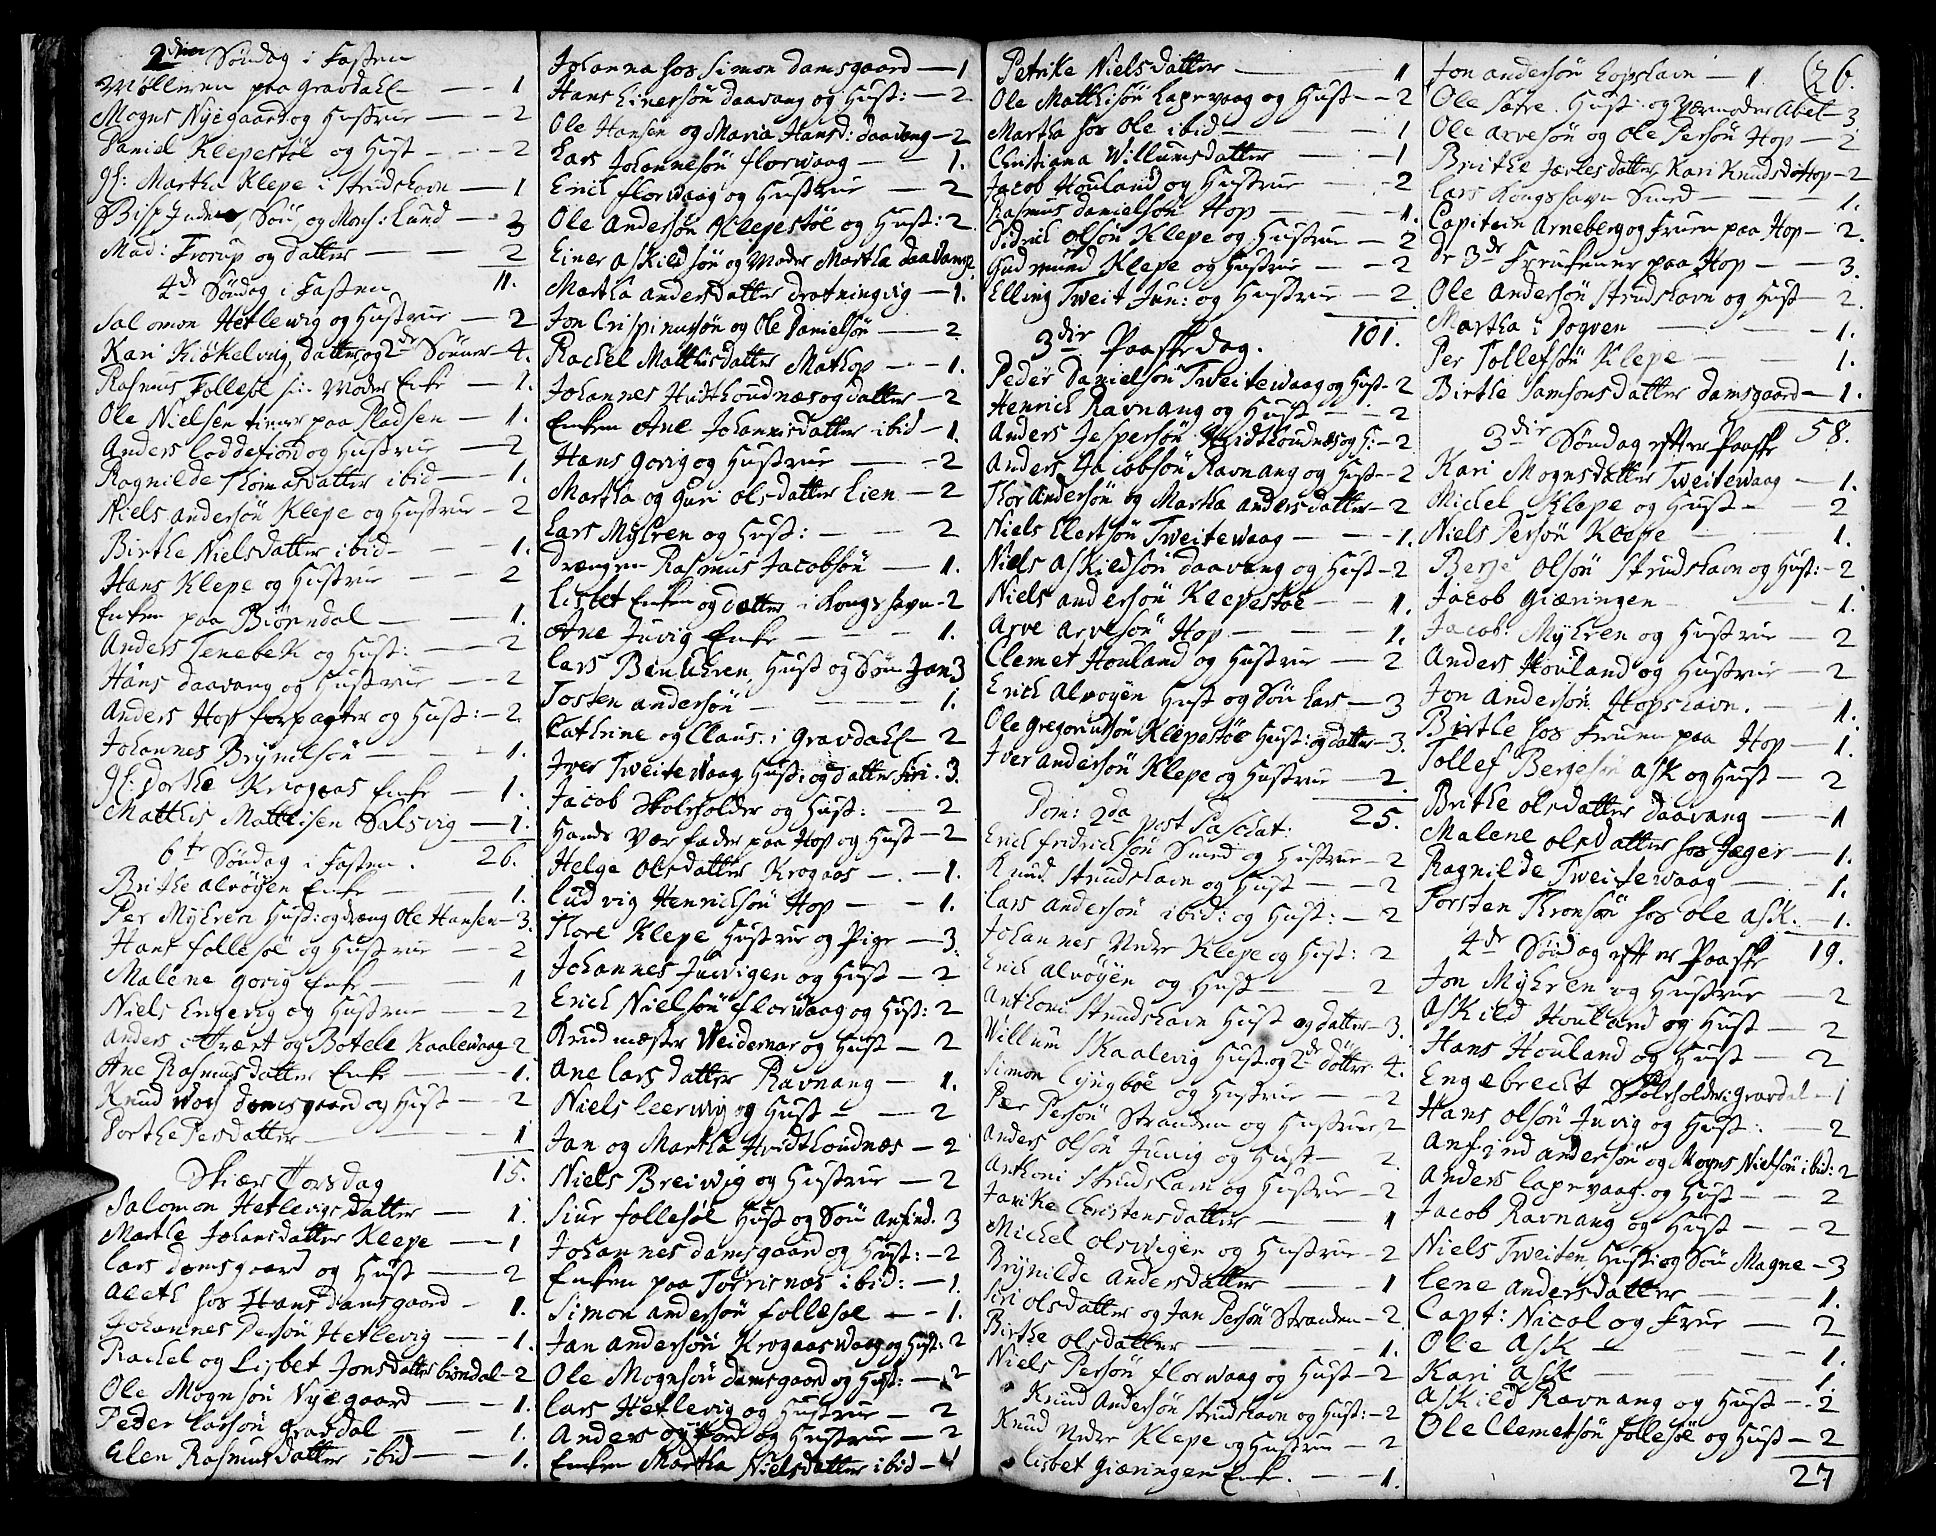 2den Søndag i Fasten
Mølleren paa Gravdahl — 1
Mogns Nyegaard og Hustrue — 2
Daniel Klepestøl og Hust — 2
gl: Martha Klepe i Strudshavn — 1
Bisp Søn og Mons: Lund — 3
Mad: Frorup og datter — 2
11.
4de Søndag i Fasten
Salomon Hetlevig og Hustrue — 2
Kari Kiøkelvig, datter og 2de Sønner — 4.
Rasmus Follesøe Moder Enke — 1.
Ole Nielsen tiener paa Pladsen — 1.
Anders Loddefiord og Hustrue — 2
Ragnilde Thomasdatter ibid — 1.
Niels Andersøn Klepe og Hustrue — 2
Birthe Nielsdatter ibid — 1.
Hans Klepe og Hustrue — 2
Enken paa Biørndal — 1.
Anders Tenebek og Hust: — 2
Hans Daavang og Hustrue — 2
Anders Hop forpagter og Hust: — 2.
Johannes Brynelsøn — 1.
gl: Dorthe Krogaas Enke — 1.
Matthis Matthisen Salsvig — 1.
6te Søndag i Fasten. 26.
Brithe Alvøyen Enke — 1.
Per Myhren Hust: og dreng Ole Hansen — 3.
Hans Follesøe og Hustrue — 2
Malene Gorig Enke — 1
Niels Engevig og Hustrue — 2
Anders Thvært og Botele Kaalevaag — 2
Ane Rasmusdatter Enke — 1.
Knud Damsgaard og Hust — 2
Dorthe Persdatter — 1
15.
Skiær Torsdag
Salomon Hetlevigs datter — 1.
Marthe Johansdatter Klepe — 1
Lars Damsgaard og Hust — 2
Aleth hos Hans Damsgaard — 1.
Johannes Persøn Hetlevig — 1.
Rachel og Lisbet Jonsdatter Biørndal — 2
Ole Mognsøn Nyegaard — 1.
Peder Larsøn Gravdal — 1.
Elen Rasmusdatter ibid — 1.
Johanna hos Simon Damsgaard — 1
Hans Einersøn Daavang og Hust: — 2
Ole Hansen og Maria Hansd: Daavang — 2
Lars Johannesøn Florvaag — 1.
Erich Florvaag og Hustrue — 2
Ole Andersøn Klepestøe og Hust: 2
Einer Askildsøn og Moder Martha Daavang 2
Martha Andersdatter Drotningvig — 1.
Jon Crispinussøn og Ole Danielsøn — 2
Rachel Matthisdatter Mathop — 1.
Johannes Hvidthoudnæs og datter — 2
Enken Ane Johannisdatter ibid — 1.
Hans Gorig og Hustrue — 2
Martha og Guri Olsdatter Lien — 2
Lars Myhren og Hust: — 2
Drængen Rasmus Jacobsøn — 1.
Lisbet Enken og datter i Kongshavn — 2
Ane Juvig Enke — 1.
Lars Hust og Søn Jan 3
Tosten Andersøn — 1.
Cathrine og Claus: i Gravdahl — 2
Iver Tweitewaag Hust: og datter Siri. 3.
Jacob Skoleholder og Hust: — 2
Hands Værfader paa Hop og Hust — 2
Helge Olsdatter Krogaas — 1.
Ludvig Henrichsøn Hop — 1.
Thore Klepe Hustrue og Pige — 3.
Johannes Juvigen og Hust — 2
Erich Nielsøn Florwaag og Hust: 2
Brudmester Weidemar og Hust — 2
Ane Larsdatter Ravnang — 1.
Niels Leervig og Hust — 2
Jan og Martha Hvidthoudnæs — 2
Niels Breivig og Hustrue — 2
Siur Follesøe Hust og Søn Anfind. 3
Johannes Damsgaard og Hust: — 2
Enken paa Torrisnæs ibid: — 1.
Simon Andersøn Follesøe — 1.
Jan Andersøn Krogaaswaag og Hust: 2
Ole Mognsøn Damsgaard og Hust: — 2
Lars Hetlevig og Hustrue — 2
Anders og Hustrue — 2
Enken Martha Nielsdatter ibid — 1
Petrike Nielsdatter — 1
Ole Matthisøn Lapevaag og Hust — 2
Martha hos Ole ibid — 1
Christiana Willumsdatter — 1
Jacob Houland og Hustrue — 2
Rasmus Danielsøn Hop — 1.
Didrich Olsøn Klepe og Hustrue — 2
Gudmund Klepe og Hustrue — 2
Elling Tweit Jun: og Hustrue — 2
101.
3die Paaskedag.
Peder Danielsøn Tweitewaag og Hust — 2
Henrich Ravnang og Hust — 2
Anders Jespersøn Hvidthoudnæs og H: — 2
Anders Jacobsøn Ravnang og Hust — 2
Thor Andersøn og Martha Andersdatter — 2
Niels Elertsøn Tweitewaag — 1.
Niels Askildsøn Daavang og Hust — 2
Niels Andersøn Klepestøe — 1.
Arve Arvesøn Hop — 1.
Clemet Houland og Hustrue — 2
Erich Alvøyen Hust og Søn Lars — 3
Ole Gregoriussøn Klepestøe Hust: og datter — 3.
Iver Andersøn Klepe og Hustrue — 2.
Dom: 2da post Paschat: 25.
Erich Fridrichsøn Smed og Hustrue — 2
Knud Strudshavn og Hust — 2
Lars Andersøn ibid: og Hust: — 2
Johannes Nedre Klepe og Hust: 2
Erich Alvøyen og Hust — 2
Anthoni Strudshavn Hust og datter — 3.
Willum Skaalevig Hust og 2de døtter 4.
Simon Lyngbøe og Hustrue — 2
Per Persøn Stranden og Hustrue 2
Anders Olsøn Juvig og Hust — 2.
Anthoni Strudshavn og Hustrue — 2
Janike Christensdatter — 1
Michel Olsvigen og Hustrue — 2
Brynilde Andersdatter — 1
Siri Olsdatter og Jan Persøn Stranden — 2.
Birthe Olsdatter — 1.
Niels Persøn Florwaag og Hust — 2
Knud Andersøn Strudshavn og Hust: — 2
Knud Nedre Klepe og Hustrue — 2
Lisbet Giæringen Enke. — 1.
26.
Jon Andersøn Hopshavn — 1
Ole Sætre. Hust: og Værmoder Abel — 3
Ole Arvesøn og Ole Persøn Hop — 2
Brithe Jærlesdatter, Kari Knudsd: Hop — 2
Lars Kongshavn Smed — 1.
Capitein Arneberg og Fruen paa Hop — 2.
De 3de Frøkener paa Hop — 3.
Ole Andersøn Strudshavn og Hust — 2.
Martha i Dogven — 1.
Per Tollefsøn Klepe — 1.
Birthe Samsonsdatter Damsgaard — 1.
58.
3die Søndag efter Paaske
Kari Mognsdatter Tweitewaag — 1.
Michel Klepe og Hust — 2
Niels Persøn Klepe — 1.
Berje Olsøn Strudshavn og Hust: — 2
Jacob Giæringen — 1.
Jacob: Myhren og Hustrue — 2
Anders Houland og Hustrue — 2
Jon Andersøn Hopshavn. — 1.
Birthe hos Fruen paa Hop — 1.
Tollef Bergesøn Ask og Hust — 2
Brithe Olsdatter Daavang — 1
Malene Olsdatter hos Jæger — 1.
Ragnilde Tweitewaag — 1.
Torsten Thronsøn hos Ole Ask. — 1.
4de Søndag efter Paaske 19.
Jon Myhren og Hustrue — 2
Askild Houland og Hust — 2
Hans Houland og Hust — 2
Engebrecht Skoleholder i Gravdal — 1
Hans Olsøn Juvig og Hust: — 2
Anfind Andersøn og Mogns Nielsøn ibid: 2
Anders Lapevaag. og Hust — 2
Jacob Ravnang og Hust — 2
Niels Tweiten, Hust: og Søn Magne — 3
Lene Andersdatter — 1.
Capt: Nicol og Frue — 2
Ole Ask — 1.
Kari Ask — 1
Askild Ravnang og Hust — 2
Ole Clemetsøn Follesøe og Hust — 2
27